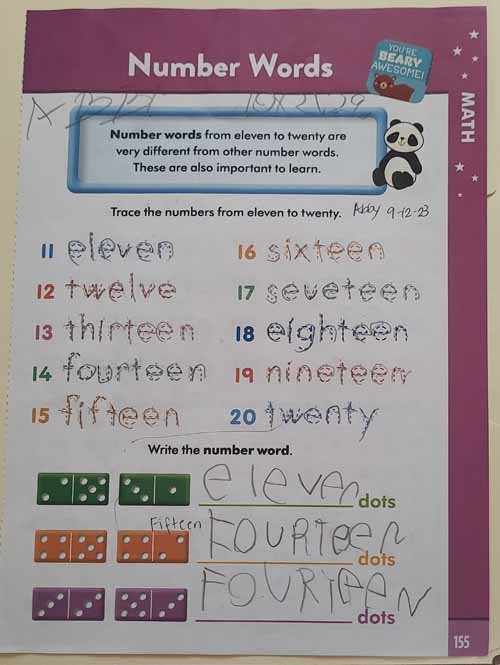 Number Words
YOU'RE
BEARY
AWESOME!
MATH
Number words from eleven to twenty are
very different from other number words.
These are also important to learn.
Trace the numbers from eleven to twenty. Abby 9-12-23
11 eleven
16 sixteen
12 twelve
17 seveteen
13 thirteen
18 eighteen
14 fourteen
19 nineteen
15 fifteen
20 twenty
Write the number word.
eleven dots
Fifteen
FOURTEEN dots
FOURTEEN dots
155